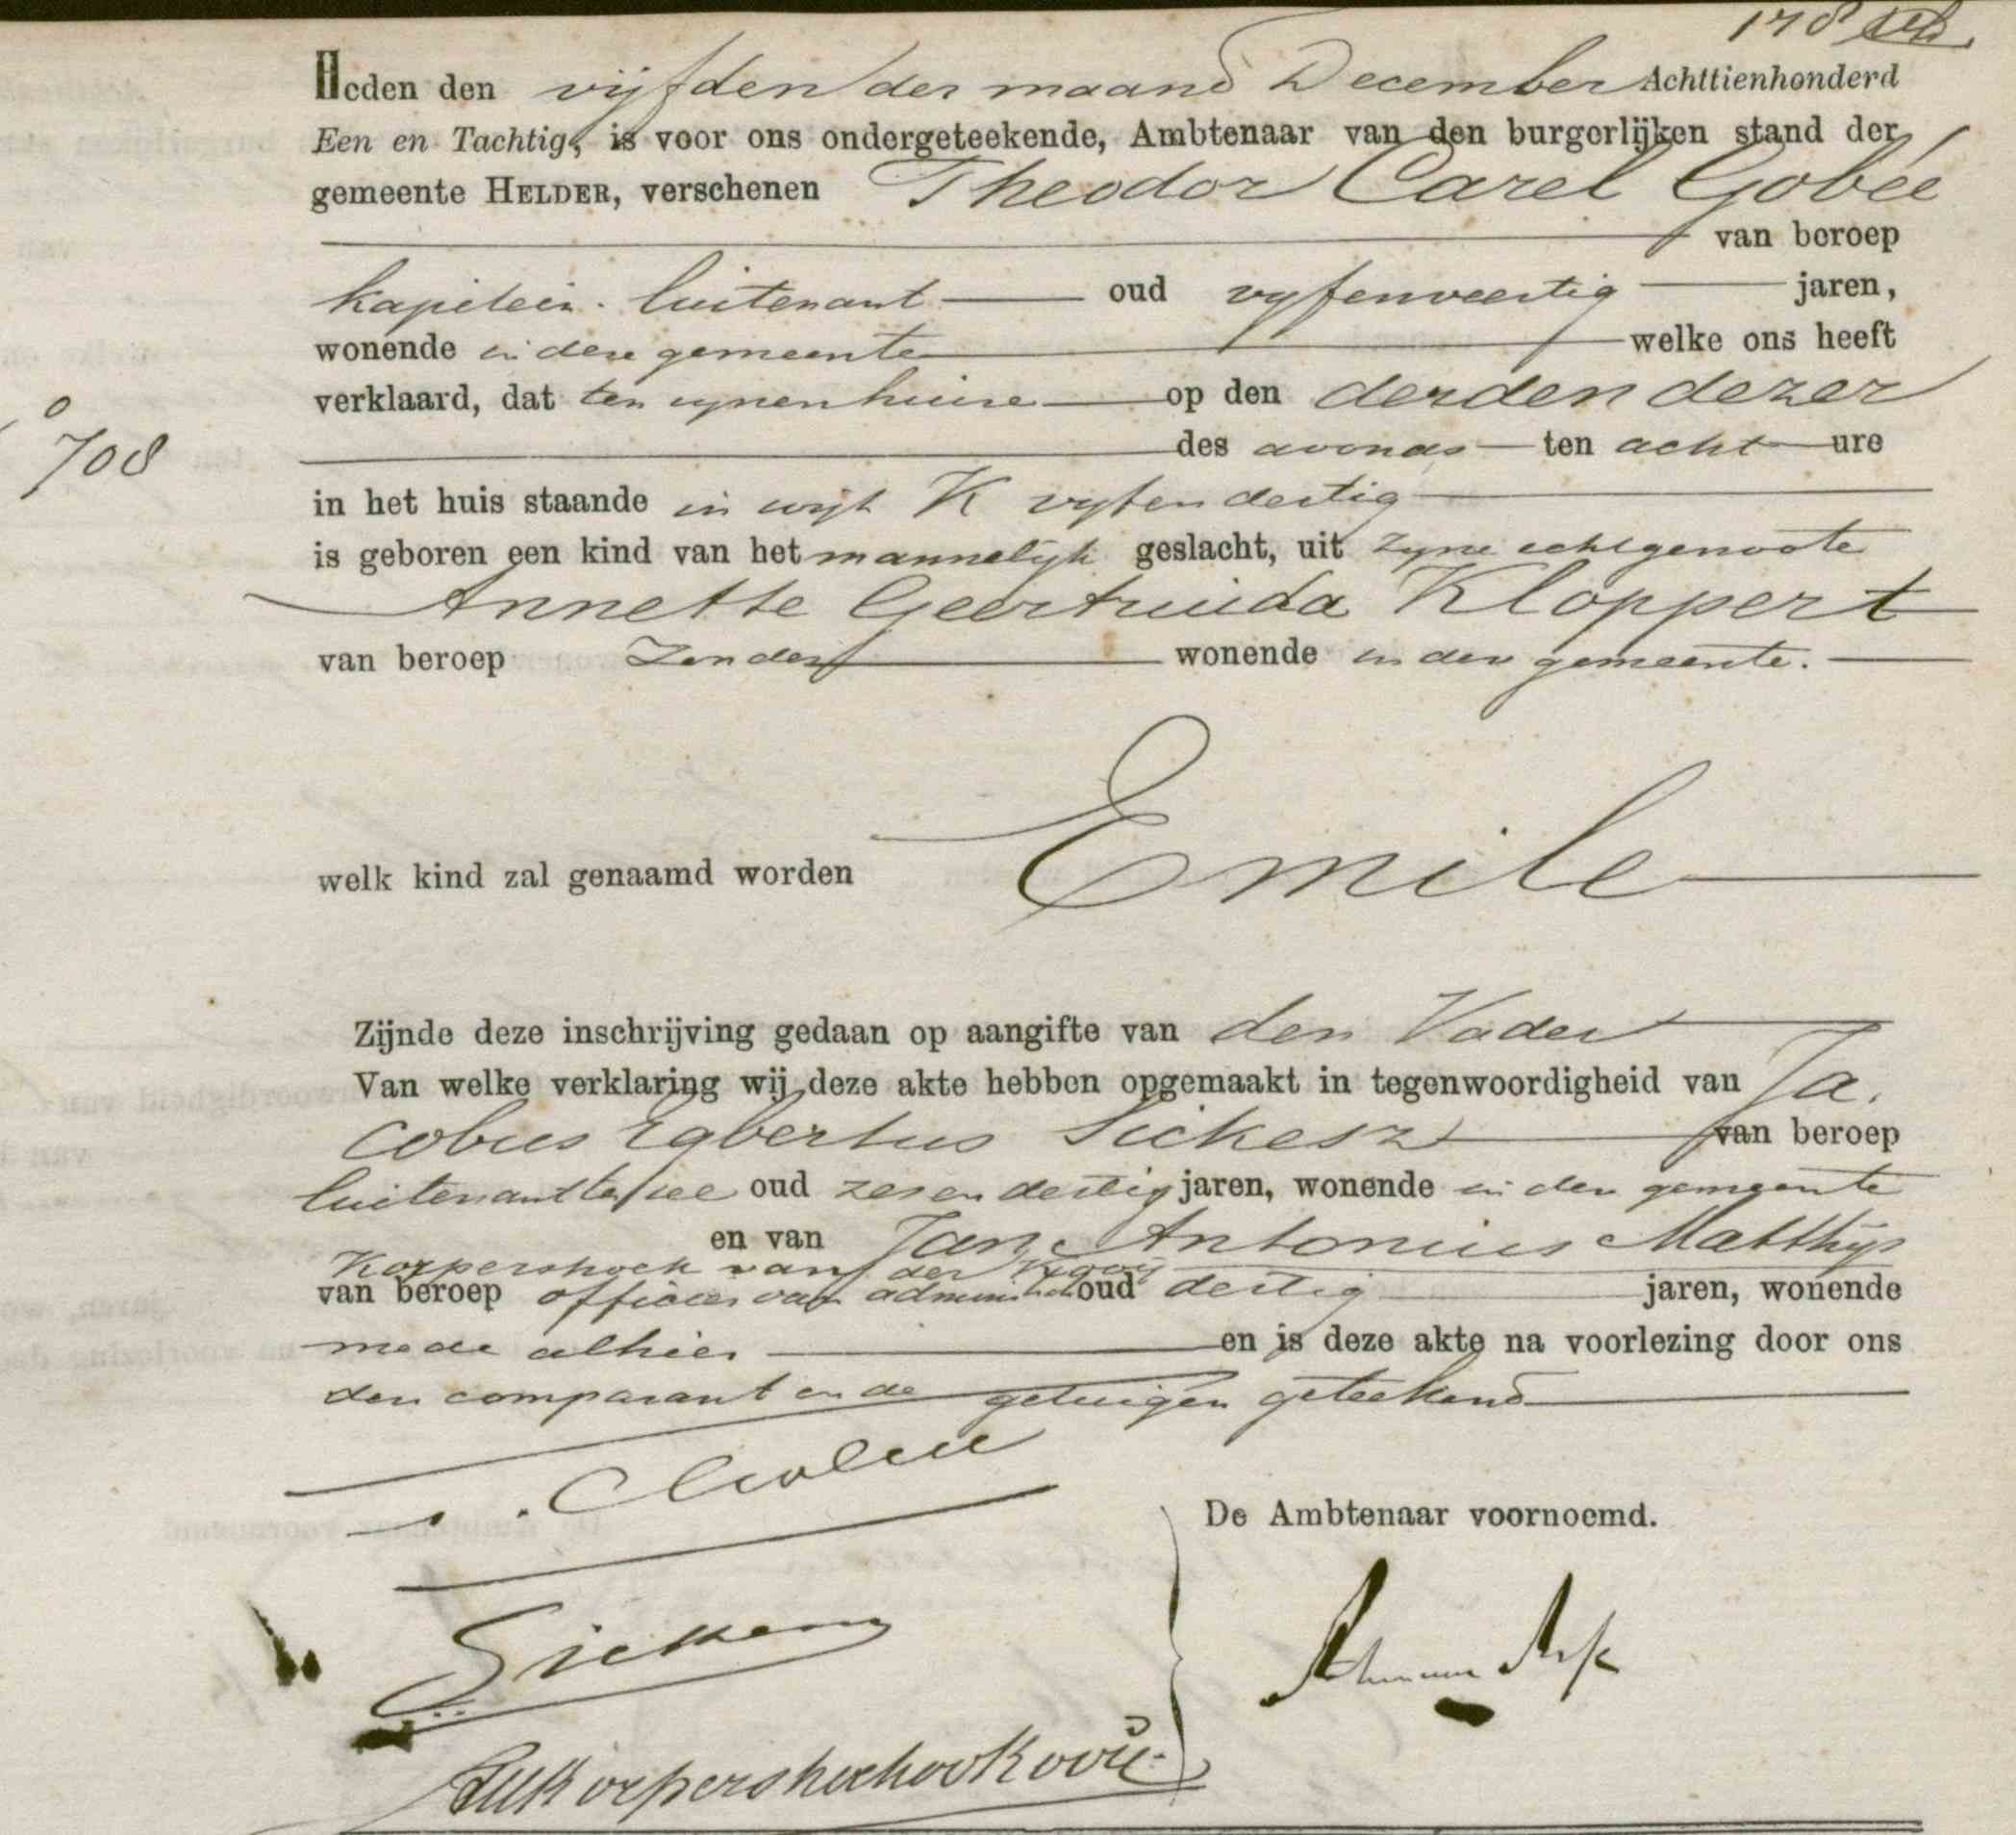 178
Heden den vijfden der maand December Achttienhonderd
Een en Tachtig, is voor ons ondergeteekende, Ambtenaar van den burgerlijken stand der
gemeente HELDER, verschenen Theodor Carel Gobée
van beroep
kapitein-luitenant oud vyfenveertig jaren,
wonende in deze gemeente welke ons heeft
verklaard, dat ten zynen huise op den derden dezer
des avonds ten acht ure
708
in het huis staande in wijk K vyfendertig
is geboren een kind van het mannelyk geslacht, uit zyne echtgenoote
Annette Geertruida Kloppert
van beroep Zonder wonende in deze gemeente.
welk kind zal genaamd worden Emile
Zijnde deze inschrijving gedaan op aangifte van den Vader
Van welke verklaring wij deze akte hebben opgemaakt in tegenwoordigheid van Ja.
cobus Egbertus Sickesz van beroep
luitenant ter zee oud zesendertig jaren, wonende in deze gemeente
en van Jan Antonius Matthijs
Korpershoek van der Kooy
van beroep officier van administ oud dertig jaren, wonende
mede alhier en is deze akte na voorlezing door ons
den comparant en de getuigen geteekend
De Ambtenaar voornoemd.